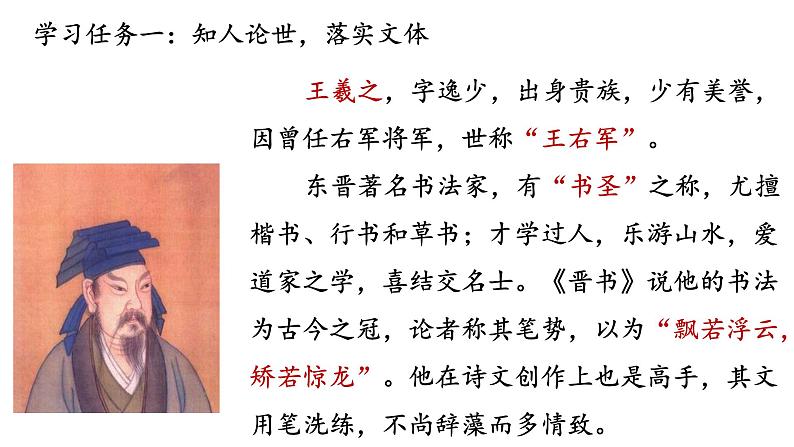 学习任务一：知人论世，落实文体
王羲之，字逸少，出身贵族，少有美誉，
因曾任右军将军，世称“王右军”。
东晋著名书法家，有“书圣”之称，尤擅
楷书、行书和草书；才学过人，乐游山水，爱
道家之学，喜结交名士。《晋书》说他的书法
为古今之冠，论者称其笔势，以为“飘若浮云，
矫若惊龙”。他在诗文创作上也是高手，其文
用笔洗练，不尚辞藻而多情致。